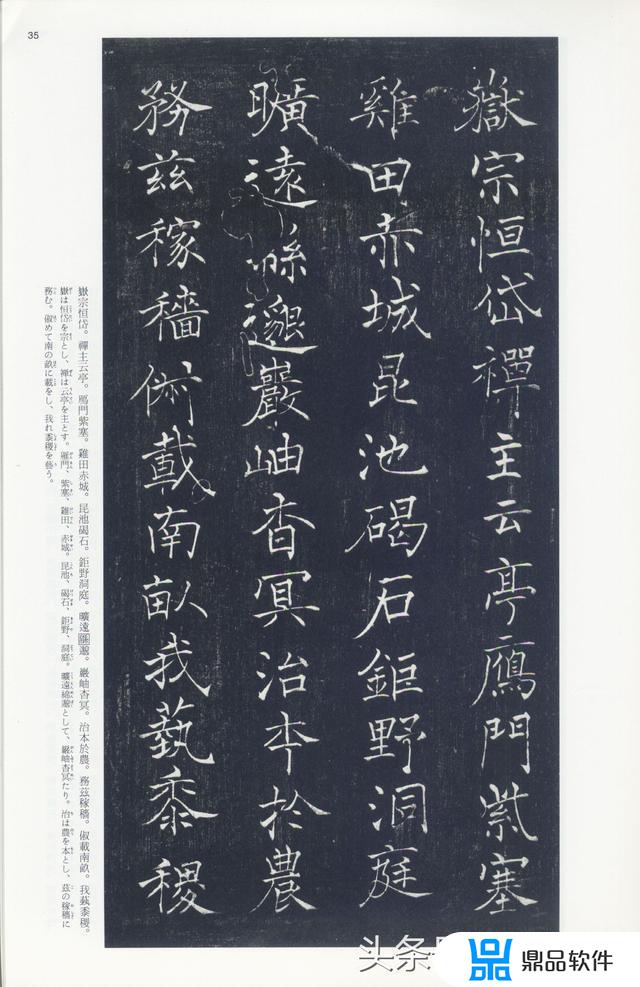 35
嶽宗恒岱禪主云亭鴈門紫塞
雞田赤城昆池碣石鉅野洞庭
曠遠緜邈巖岫杳冥治本於農
務茲稼穡俶載南畝我藝黍稷
嶽宗恒岱。禪主云亭。鴈門紫塞。雞田赤城。昆池碣石。鉅野洞庭。曠遠緜邈。巖岫杳冥。治本於農。務茲稼穡。俶載南畝。我藝黍稷。
嶽は恒岱を宗とし、禅は云亭を主とす。雁門、紫塞、雞田、赤城。昆池、碣石、鉅野、洞庭。曠遠綿邈として、巌岫杳冥たり。治は農を本とし、茲の稼穡に
務む。俶めて南の畝に載をし、我れ黍稷を藝う。
头条
鼎品软件